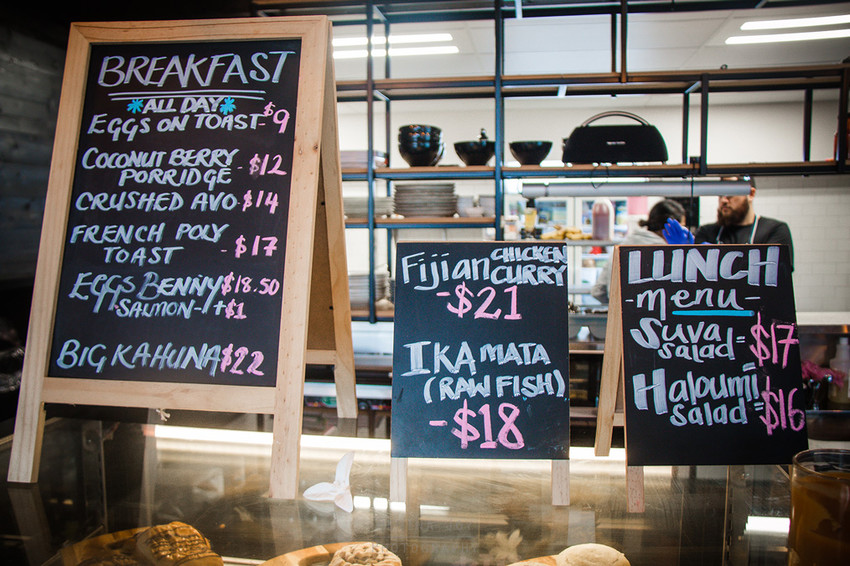 BREAKFAST
*ALL DAY*
EGGS ON TOAST-$9
COCONUT BERRY
PORRIDGE -$12
CRUSHED AVO-$14
FRENCH POLY
TOAST -$17
EGGS BENNY $18.50
SALMON-+$1
BIG KAHUNA $22
FijiAN CHICKEN
CURRY
-$21
IKA MATA
(RAW FISH)
-$18
LUNCH
-menu-
SUVA
salad=$17
Haloumi
salad=$16